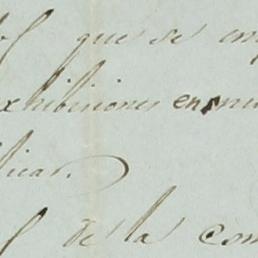 que se em
exhibiciones en su
licar.
de la com